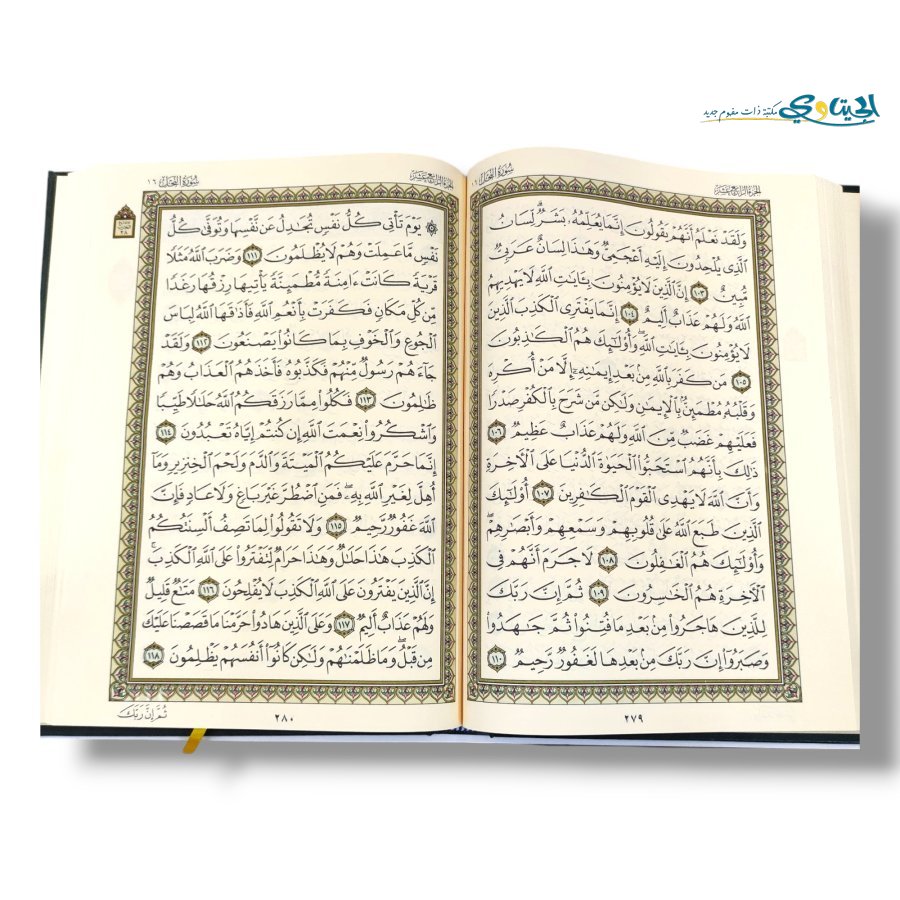 الجيتاوي مكتبة ذات مفهوم جديد
الجزء الرابع عشر
سورة النحل ١٦
وَلَقَدْ نَعْلَمُ أَنَّهُمْ يَقُولُونَ إِنَّمَا يُعَلِّمُهُۥ بَشَرٌ ۗ لِّسَانُ
ٱلَّذِى يُلْحِدُونَ إِلَيْهِ أَعْجَمِىٌّ وَهَٰذَا لِسَانٌ عَرَبِىٌّ
مُّبِينٌ ١٠٣ إِنَّ ٱلَّذِينَ لَا يُؤْمِنُونَ بِـَٔايَٰتِ ٱللَّهِ لَا يَهْدِيهِمُ
ٱللَّهُ وَلَهُمْ عَذَابٌ أَلِيمٌ ١٠٤ إِنَّمَا يَفْتَرِى ٱلْكَذِبَ ٱلَّذِينَ
لَا يُؤْمِنُونَ بِـَٔايَٰتِ ٱللَّهِ ۖ وَأُو۟لَٰٓئِكَ هُمُ ٱلْكَٰذِبُونَ
١٠٥ مَن كَفَرَ بِٱللَّهِ مِنۢ بَعْدِ إِيمَٰنِهِۦٓ إِلَّا مَنْ أُكْرِهَ
وَقَلْبُهُۥ مُطْمَئِنٌّۢ بِٱلْإِيمَٰنِ وَلَٰكِن مَّن شَرَحَ بِٱلْكُفْرِ صَدْرًا
فَعَلَيْهِمْ غَضَبٌ مِّنَ ٱللَّهِ وَلَهُمْ عَذَابٌ عَظِيمٌ ١٠٦
ذَٰلِكَ بِأَنَّهُمُ ٱسْتَحَبُّوا۟ ٱلْحَيَوٰةَ ٱلدُّنْيَا عَلَى ٱلْـَٔاخِرَةِ
وَأَنَّ ٱللَّهَ لَا يَهْدِى ٱلْقَوْمَ ٱلْكَٰفِرِينَ ١٠٧ أُو۟لَٰٓئِكَ
ٱلَّذِينَ طَبَعَ ٱللَّهُ عَلَىٰ قُلُوبِهِمْ وَسَمْعِهِمْ وَأَبْصَٰرِهِمْ ۖ
وَأُو۟لَٰٓئِكَ هُمُ ٱلْغَٰفِلُونَ ١٠٨ لَا جَرَمَ أَنَّهُمْ فِى
ٱلْـَٔاخِرَةِ هُمُ ٱلْخَٰسِرُونَ ١٠٩ ثُمَّ إِنَّ رَبَّكَ
لِلَّذِينَ هَاجَرُوا۟ مِنۢ بَعْدِ مَا فُتِنُوا۟ ثُمَّ جَٰهَدُوا۟
وَصَبَرُوٓا۟ إِنَّ رَبَّكَ مِنۢ بَعْدِهَا لَغَفُورٌ رَّحِيمٌ ١١٠
٢٧٩
الجزء الرابع عشر
سورة النحل ١٦
۞ يَوْمَ تَأْتِى كُلُّ نَفْسٍ تُجَٰدِلُ عَن نَّفْسِهَا وَتُوَفَّىٰ كُلُّ
نَفْسٍ مَّا عَمِلَتْ وَهُمْ لَا يُظْلَمُونَ ١١١ وَضَرَبَ ٱللَّهُ مَثَلًا
قَرْيَةً كَانَتْ ءَامِنَةً مُّطْمَئِنَّةً يَأْتِيهَا رِزْقُهَا رَغَدًا
مِّن كُلِّ مَكَانٍ فَكَفَرَتْ بِأَنْعُمِ ٱللَّهِ فَأَذَٰقَهَا ٱللَّهُ لِبَاسَ
ٱلْجُوعِ وَٱلْخَوْفِ بِمَا كَانُوا۟ يَصْنَعُونَ ١١٢ وَلَقَدْ
جَآءَهُمْ رَسُولٌ مِّنْهُمْ فَكَذَّبُوهُ فَأَخَذَهُمُ ٱلْعَذَابُ وَهُمْ
ظَٰلِمُونَ ١١٣ فَكُلُوا۟ مِمَّا رَزَقَكُمُ ٱللَّهُ حَلَٰلًا طَيِّبًا
وَٱشْكُرُوا۟ نِعْمَتَ ٱللَّهِ إِن كُنتُمْ إِيَّاهُ تَعْبُدُونَ ١١٤
إِنَّمَا حَرَّمَ عَلَيْكُمُ ٱلْمَيْتَةَ وَٱلدَّمَ وَلَحْمَ ٱلْخِنزِيرِ وَمَآ
أُهِلَّ لِغَيْرِ ٱللَّهِ بِهِۦ ۖ فَمَنِ ٱضْطُرَّ غَيْرَ بَاغٍ وَلَا عَادٍ فَإِنَّ
ٱللَّهَ غَفُورٌ رَّحِيمٌ ١١٥ وَلَا تَقُولُوا۟ لِمَا تَصِفُ أَلْسِنَتُكُمُ
ٱلْكَذِبَ هَٰذَا حَلَٰلٌ وَهَٰذَا حَرَامٌ لِّتَفْتَرُوا۟ عَلَى ٱللَّهِ ٱلْكَذِبَ ۚ
إِنَّ ٱلَّذِينَ يَفْتَرُونَ عَلَى ٱللَّهِ ٱلْكَذِبَ لَا يُفْلِحُونَ ١١٦ مَتَٰعٌ قَلِيلٌ
وَلَهُمْ عَذَابٌ أَلِيمٌ ١١٧ وَعَلَى ٱلَّذِينَ هَادُوا۟ حَرَّمْنَا مَا قَصَصْنَا عَلَيْكَ
مِن قَبْلُ ۖ وَمَا ظَلَمْنَٰهُمْ وَلَٰكِن كَانُوٓا۟ أَنفُسَهُمْ يَظْلِمُونَ ١١٨
٢٨٠
ثُمَّ إِنَّ رَبَّكَ